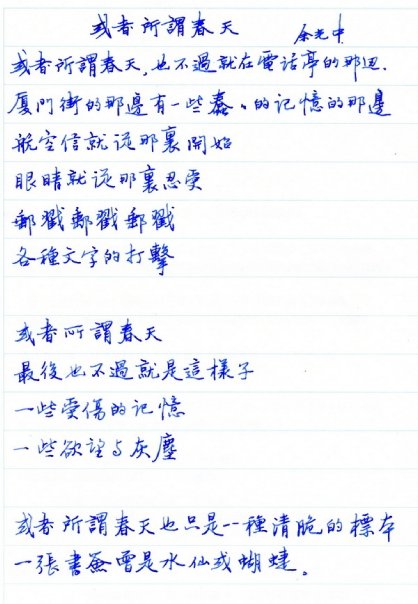 或者所謂春天 余光中
或者所謂春天,也不過就在電話亭的那边.
厦門街的那邊有一些蠢、的记憶的那邊
航空信就従那裏開始
眼睛就従那裏忍受
郵戳郵戳郵戳
各種文字的打擊
或者所謂春天
最後也不過就是這樣子
一些受傷的记憶
一些欲望与灰塵
或者所謂春天也只是一種清脆的標本
一張書簽曾是水仙或蝴蝶。